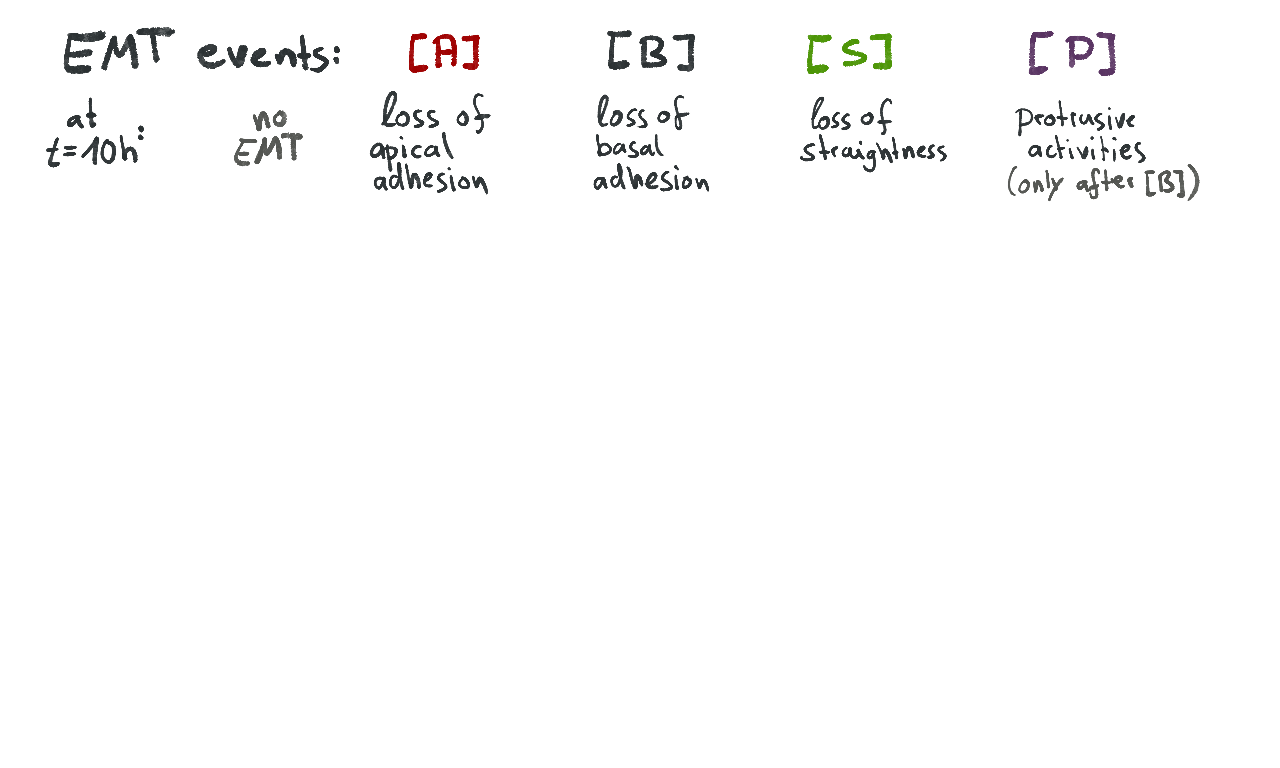 EMT events: [A] [B] [S] [P]
at t=10h:
no EMT
loss of
apical
adhesion
loss of
basal
adhesion
loss of
straightness
protrusive
activities
(only after [B])